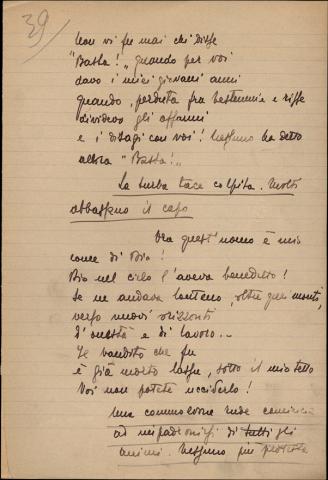 39
Non vi fu mai chi disse
"Basta!" quando per voi
davo i miei giovani anni
quando, perduta fra bestemmie e risse
dividevo gli affanni
e i disagi con voi! Nessuno ha detto
allora "Basta!"..
La turba tace colpita. Molti
abbassano il capo
Ora quest'uomo è mio
come di Dio!
Dio nel cielo l'aveva benedetto!
Se ne andava lontano, oltre quei monti,
verso nuovi orizzonti
d'onestà e di lavoro...
Il bandito che fu
è già morto lassù, sotto il mio tetto
Voi non potete ucciderlo!
Una commozione rude comincia
ad impadronirsi di tutti gli
animi. Nessuno più protesta